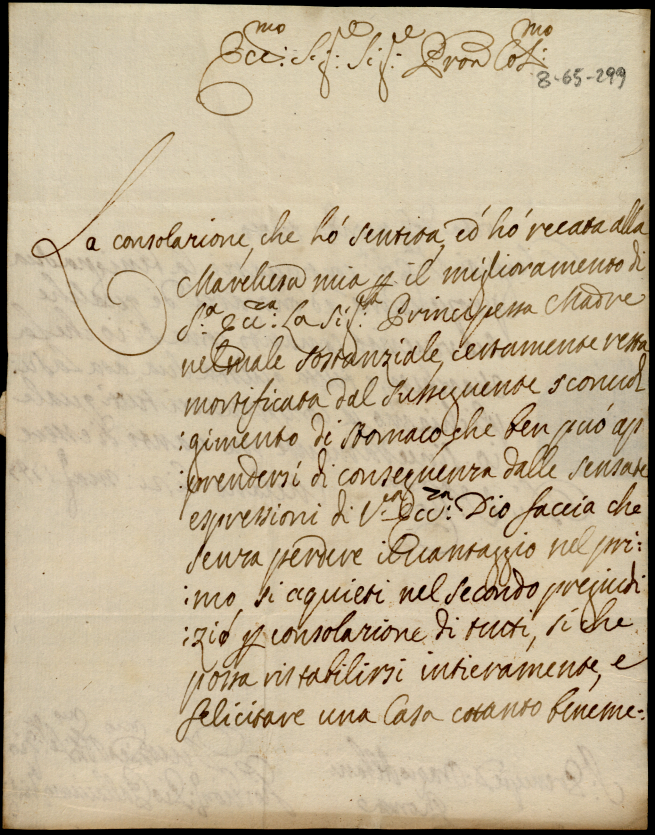 Ecc:mo Sig:re Sig:re Pron Col:mo
8-65-299
La consolazione, che hó sentita, ed hó recata alla
Marchesa mia p il miglioramento di
S:a Ecc:za La Sig:ra Principessa Madre
nel male sostanziale, certamente resta
mortificata dal susseguente sconvol
:gimento di stomaco, che ben puó ap
:prendersi di conseguenza dalle sensate
espressioni di V:ra Ecc:za. Dio faccia che
senza perdere il vantaggio nel pri:
:mo, si aquieti nel secondo prejudi
:zio p consolazione di tutti, si che
possa ristabilirsi intieramente, e
felicitare una Casa cotanto beneme: